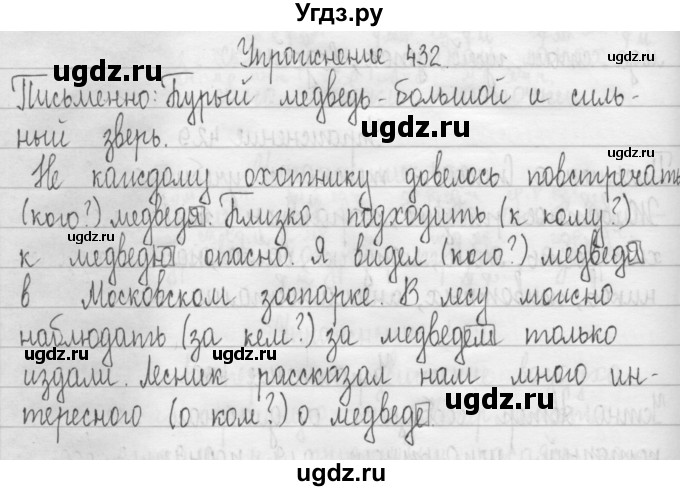 Угдз.ру
Упражнение 432
Письменно: Бурый медведь - большой и силь-
ный зверь.
Не каждому охотнику довелось повстречать
(кого?) медведя. Близко подходить (к кому?)
к медведю опасно. Я видел (кого?) медведя
в Московском зоопарке. В лесу можно
наблюдать (за кем?) за медведем только
издали. Лесник рассказал нам много ин-
тересного (о ком?) о медведе.
ugdz.ru
ugdz.ru
ugdz.ru
ugdz.ru
ugdz.ru
ugdz.ru
ugdz.ru
ugdz.ru
ugdz.ru
ugdz.ru
ugdz.ru
ugdz.ru